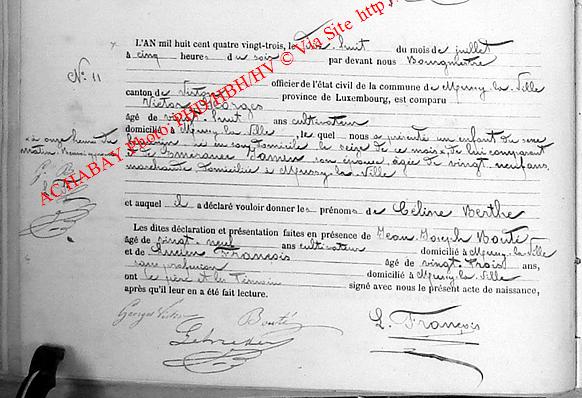 L'AN mil huit cent quatre vingt-trois, le dix huit du mois de juillet
à cinq heures du soir par devant nous Bourgmestre
N° 11
officier de l'état civil de la commune de Mussy-la-Ville
canton de Virton province de Luxembourg, est comparu
Victor Georges
âgé de vingt huit ans cultivateur
domicilié à Mussy la Ville, lequel nous a présenté un enfant du sexe
féminin né en son domicile le seize de ce mois x, de lui comparant
et de son épouse, âgée de vingt neuf ans
marchande domiciliée à Mussy-la-Ville
x à onze heures du
matin
et auquel il a déclaré vouloir donner les prénoms de Céline Berthe
Les dites déclaration et présentation faites en présence de Jean Joseph Bouté
âgé de vingt neuf ans cultivateur domicilié à Mussy-la-Ville
et de Lucien François âgé de vingt trois ans,
sans profession domicilié à Mussy-la-Ville
ont le père et les témoins signé avec nous le présent acte de naissance,
après qu'il leur en a été fait lecture.
Georges Victor Bouté L. François
ACHABAY Photo PHD/HBH/HV © Via Site http:/